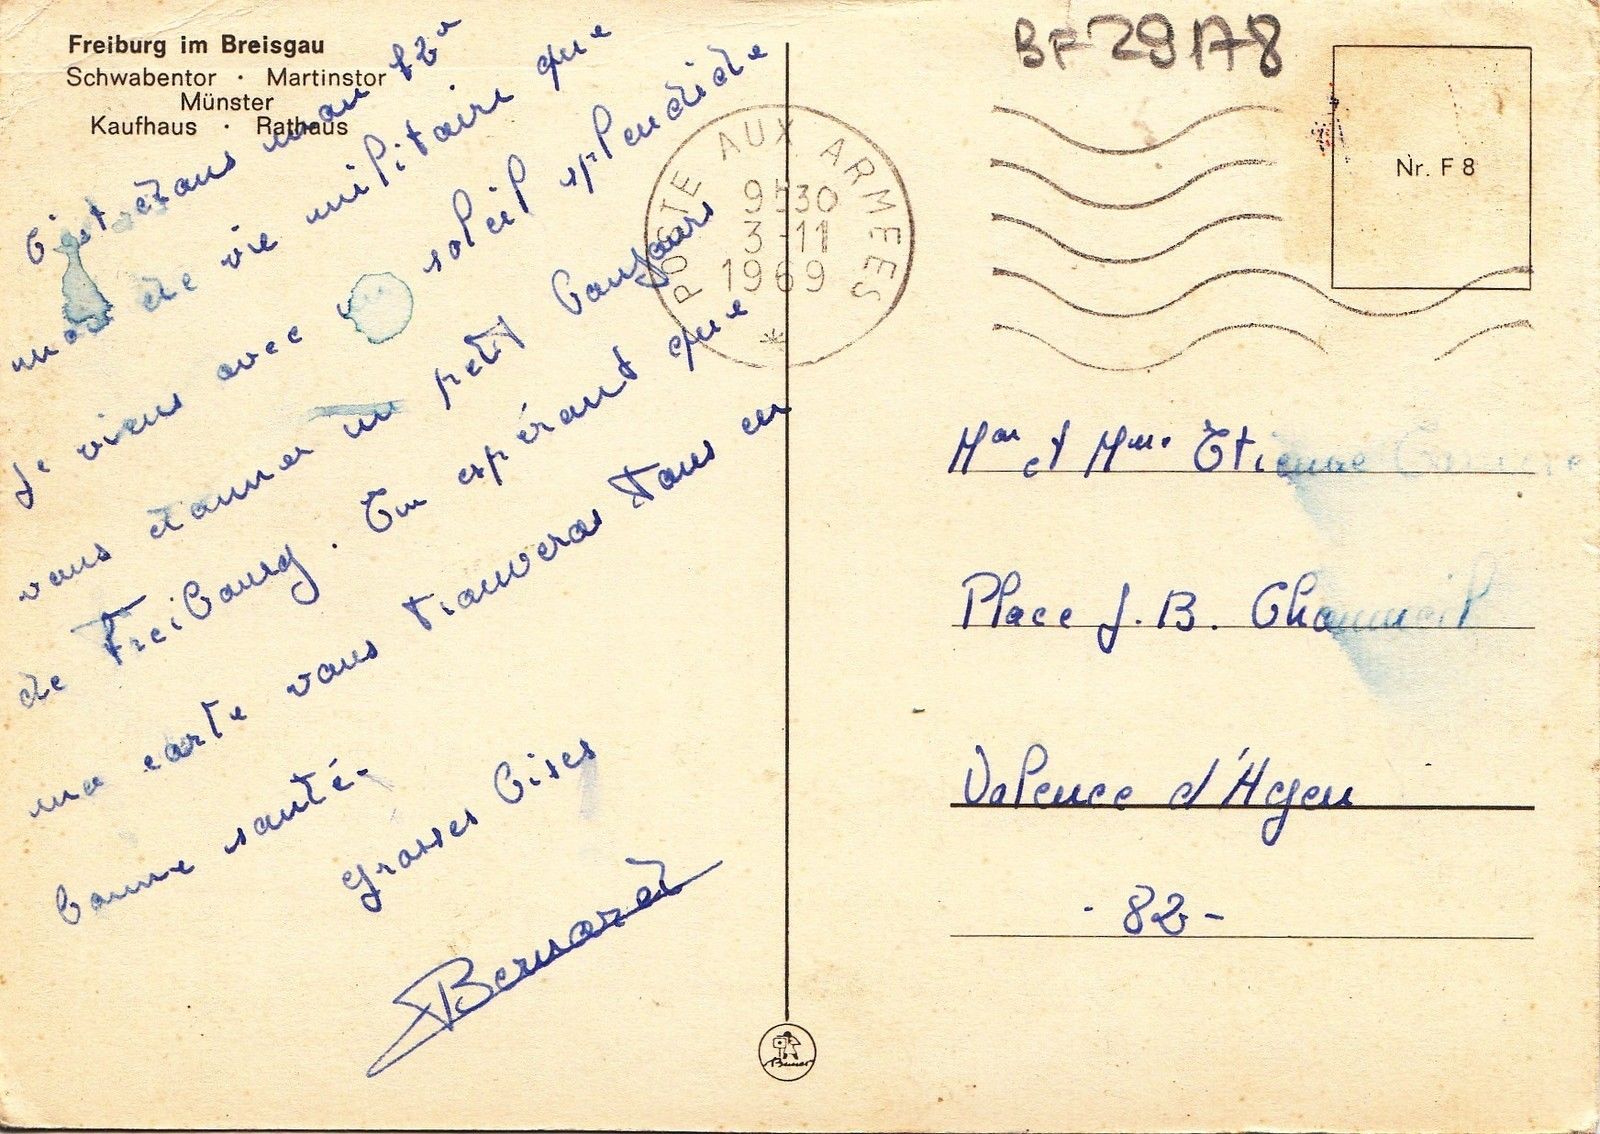 Freiburg im Breisgau
Schwabentor · Martinstor
Münster
Kaufhaus · Rathaus
C'est dans mon 12e
mois de vie militaire que
Je viens avec un soleil splendide
vous donner un petit bonjour
de Freibourg. En espérant que
ma carte vous trouveras tous en
bonne santé.
Grosses bises
Bernard
POSTE AUX ARMEES
9H30
3-11
1969
BF29178
Nr. F 8
Mon et Mme Etienne
Place J. B. Chaumeil
Valence d'Agen
- 82 -